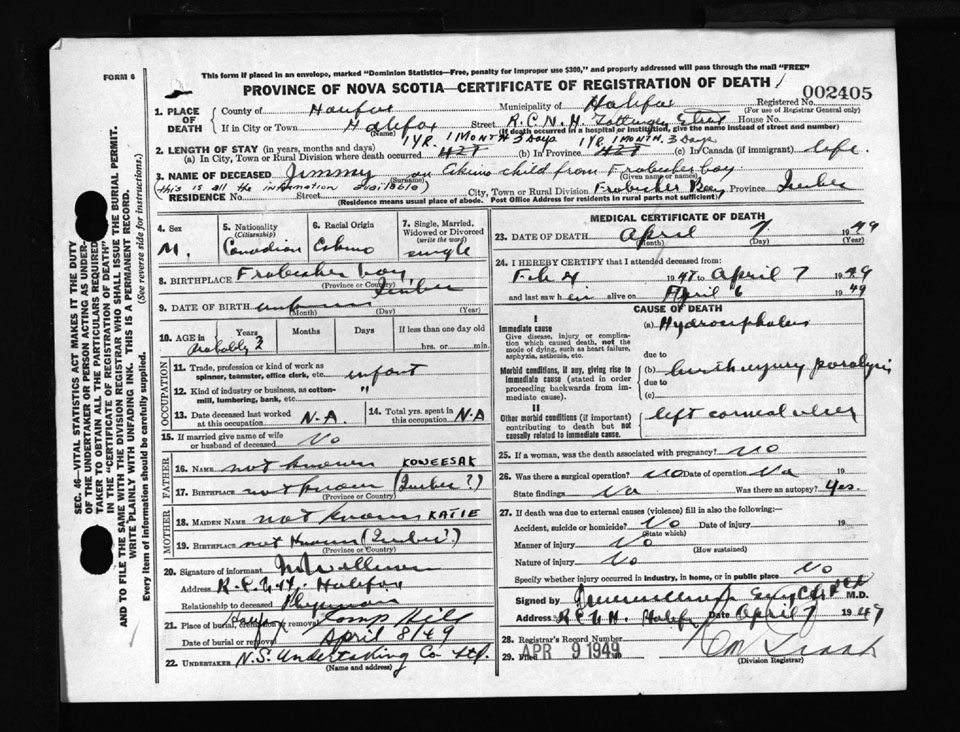 FORM 6
This form if placed in an envelope, marked "Dominion Statistics—Free, penalty for improper use $300," and properly addressed will pass through the mail "FREE"
PROVINCE OF NOVA SCOTIA—CERTIFICATE OF REGISTRATION OF DEATH
002405
1. PLACE OF DEATH County of Halifax Municipality of Halifax Registered No.
(For use of Registrar General only)
If in City or Town Halifax Street R.C.N.H. Street House No.
(Name) (If death occurred in a hospital or institution, give the name instead of street and number)
1 YR. 1 MONTH 3 Days 1 YR 1 MONTH. 3 Days
2. LENGTH OF STAY (in years, months and days)
(a) In City, Town or Rural Division where death occurred (b) In Province (c) In Canada (if immigrant) life.
3. NAME OF DECEASED Jimmy an Eskimo child from Frobisher bay
(Surname) (Given name or names)
(this is all the information available)
RESIDENCE No. Street City, Town or Rural Division Frobisher Bay Province Quebec
(Residence means usual place of abode. Post Office Address for residents in rural parts not sufficient)
4. Sex M.
5. Nationality (Citizenship) Canadian
6. Racial Origin Eskimo
7. Single, Married, Widowed or Divorced (write the word) single
8. BIRTHPLACE Frobisher bay, Quebec
(Province or Country)
9. DATE OF BIRTH unknown
(Month) (Day) (Year)
10. AGE in Years Months Days If less than one day old
Probably 2 hrs. or min.
OCCUPATION
11. Trade, profession or kind of work as spinner, teamster, office clerk, etc. infant
12. Kind of industry or business, as cotton-mill, lumbering, bank, etc. "
13. Date deceased last worked at this occupation N.A.
14. Total yrs. spent in this occupation N.A
15. If married give name of wife or husband of deceased No
FATHER
16. NAME not known KOWEESAK
17. BIRTHPLACE not known (Quebec?)
(Province or Country)
MOTHER
18. MAIDEN NAME not known KATIE
19. BIRTHPLACE not known (Quebec?)
(Province or Country)
20. Signature of informant
Address R.C.N.H. Halifax
Relationship to deceased Physician
21. Place of burial, cremation or removal Halifax Camp Hill
Date of burial or removal April 8/49
22. UNDERTAKER N.S. Undertaking Co Ltd.
(Name and address)
MEDICAL CERTIFICATE OF DEATH
23. DATE OF DEATH April 7 1949
(Month) (Day) (Year)
24. I HEREBY CERTIFY that I attended deceased from:
Feb 4 1948 to April 7 1949
and last saw him alive on April 6 1949
CAUSE OF DEATH
I
Immediate cause (a) Hydrocephalus
Give disease, injury or complication which caused death, not the mode of dying, such as heart failure, asphyxia, asthenia, etc.
due to
Morbid conditions, if any, giving rise to immediate cause (stated in order proceeding backwards from immediate cause).
(b) birth injury paralysis
due to
(c)
II
Other morbid conditions (if important) contributing to death but not causally related to immediate cause.
left corneal ulcer
25. If a woman, was the death associated with pregnancy? No
26. Was there a surgical operation? No Date of operation Na 19
State findings Na Was there an autopsy? Yes.
27. If death was due to external causes (violence) fill in also the following:
Accident, suicide or homicide? No Date of injury 19
(State which)
Manner of injury No
(How sustained)
Nature of injury No
Specify whether injury occurred in industry, in home, or in public place No
Signed by M.D.
Address R.C.N.H. Halifax Date April 7 1949
28. Registrar's Record Number
29. Filed APR 9 1949
(Division Registrar)
SEC. 46—VITAL STATISTICS ACT MAKES IT THE DUTY
OF THE UNDERTAKER OR PERSON ACTING AS UNDER-
TAKER TO OBTAIN ALL THE PARTICULARS REQUIRED
IN THE "CERTIFICATE OF REGISTRATION OF DEATH"
AND TO FILE THE SAME WITH THE DIVISION REGISTRAR WHO SHALL ISSUE THE BURIAL PERMIT.
WRITE PLAINLY WITH UNFADING INK. THIS IS A PERMANENT RECORD.
Every item of information should be carefully supplied. (See reverse side for instructions.)